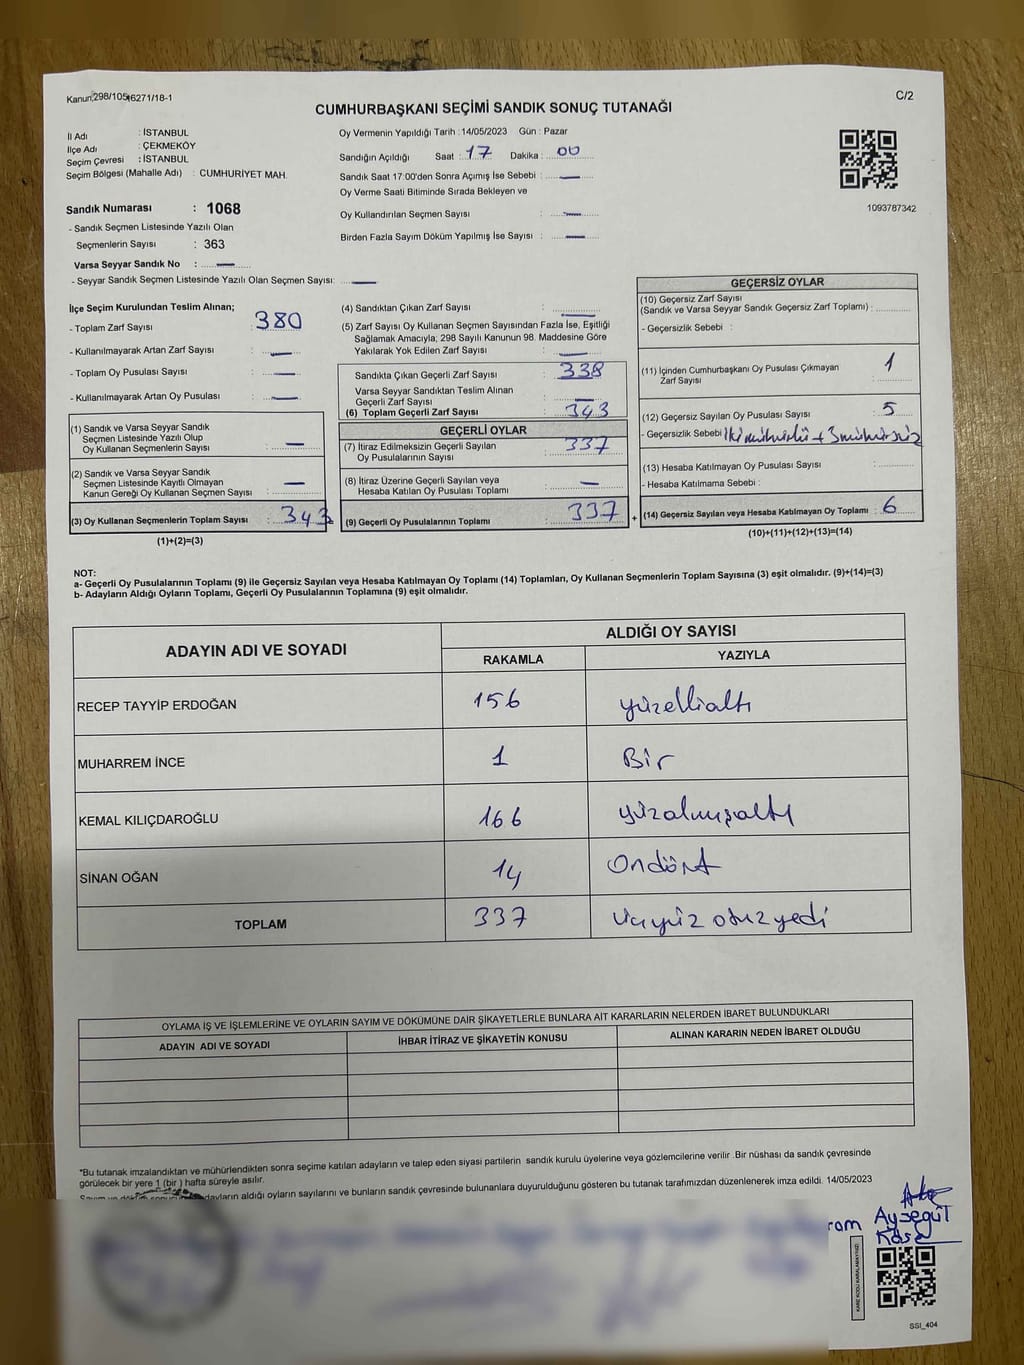 Kanun:298/105,6271/18-1
C/2
CUMHURBAŞKANI SEÇİMİ SANDIK SONUÇ TUTANAĞI
İl Adı : İSTANBUL
İlçe Adı : ÇEKMEKÖY
Seçim Çevresi : İSTANBUL
Seçim Bölgesi (Mahalle Adı) : CUMHURİYET MAH.
Sandık Numarası : 1068
- Sandık Seçmen Listesinde Yazılı Olan
Seçmenlerin Sayısı : 363
Varsa Seyyar Sandık No : —
- Seyyar Sandık Seçmen Listesinde Yazılı Olan Seçmen Sayısı: —
Oy Vermenin Yapıldığı Tarih : 14/05/2023 Gün : Pazar
Sandığın Açıldığı Saat : 17 Dakika : 00
Sandık Saat 17:00'den Sonra Açımış İse Sebebi : —
Oy Verme Saati Bitiminde Sırada Bekleyen ve
Oy Kullandırılan Seçmen Sayısı : —
Birden Fazla Sayım Döküm Yapılmış İse Sayısı : —
1093787342
İlçe Seçim Kurulundan Teslim Alınan;
- Toplam Zarf Sayısı : 380
- Kullanılmayarak Artan Zarf Sayısı : —
- Toplam Oy Pusulası Sayısı : —
- Kullanılmayarak Artan Oy Pusulası : —
(1) Sandık ve Varsa Seyyar Sandık
Seçmen Listesinde Yazılı Olup
Oy Kullanan Seçmenlerin Sayısı : —
(2) Sandık ve Varsa Seyyar Sandık
Seçmen Listesinde Kayıtlı Olmayan
Kanun Gereği Oy Kullanan Seçmen Sayısı : —
(3) Oy Kullanan Seçmenlerin Toplam Sayısı : 343
(1)+(2)=(3)
(4) Sandıktan Çıkan Zarf Sayısı : —
(5) Zarf Sayısı Oy Kullanan Seçmen Sayısından Fazla İse, Eşitliği
Sağlamak Amacıyla; 298 Sayılı Kanunun 98. Maddesine Göre
Yakılarak Yok Edilen Zarf Sayısı : —
Sandıkta Çıkan Geçerli Zarf Sayısı : 338
Varsa Seyyar Sandıktan Teslim Alınan
Geçerli Zarf Sayısı : —
(6) Toplam Geçerli Zarf Sayısı : 343
GEÇERLİ OYLAR
(7) İtiraz Edilmeksizin Geçerli Sayılan
Oy Pusulalarının Sayısı : 337
(8) İtiraz Üzerine Geçerli Sayılan veya
Hesaba Katılan Oy Pusulası Toplamı : —
(9) Geçerli Oy Pusulalarının Toplamı : 337
+
GEÇERSİZ OYLAR
(10) Geçersiz Zarf Sayısı
(Sandık ve Varsa Seyyar Sandık Geçersiz Zarf Toplamı) :
- Geçersizlik Sebebi :
(11) İçinden Cumhurbaşkanı Oy Pusulası Çıkmayan
Zarf Sayısı : 1
(12) Geçersiz Sayılan Oy Pusulası Sayısı : 5
- Geçersizlik Sebebi : İki mühürlü + 3 mühürsüz
(13) Hesaba Katılmayan Oy Pusulası Sayısı :
- Hesaba Katılmama Sebebi :
(14) Geçersiz Sayılan veya Hesaba Katılmayan Oy Toplamı : 6
(10)+(11)+(12)+(13)=(14)
NOT:
a- Geçerli Oy Pusulalarının Toplamı (9) ile Geçersiz Sayılan veya Hesaba Katılmayan Oy Toplamı (14) Toplamları, Oy Kullanan Seçmenlerin Toplam Sayısına (3) eşit olmalıdır. (9)+(14)=(3)
b- Adayların Aldığı Oyların Toplamı, Geçerli Oy Pusulalarının Toplamına (9) eşit olmalıdır.
ADAYIN ADI VE SOYADI
ALDIĞI OY SAYISI
RAKAMLA YAZIYLA
RECEP TAYYİP ERDOĞAN 156 yüzellialtı
MUHARREM İNCE 1 Bir
KEMAL KILIÇDAROĞLU 166 yüzaltmışaltı
SİNAN OĞAN 14 Ondört
TOPLAM 337 üçyüz otuz yedi
OYLAMA İŞ VE İŞLEMLERİNE VE OYLARIN SAYIM VE DÖKÜMÜNE DAİR ŞİKAYETLERLE BUNLARA AİT KARARLARIN NELERDEN İBARET BULUNDUKLARI
ADAYIN ADI VE SOYADI İHBAR İTİRAZ VE ŞİKAYETİN KONUSU ALINAN KARARIN NEDEN İBARET OLDUĞU
*Bu tutanak imzalandıktan ve mühürlendikten sonra seçime katılan adayların ve talep eden siyasi partilerin sandık kurulu üyelerine veya gözlemcilerine verilir .Bir nüshası da sandık çevresinde
görülecek bir yere 1 (bir ) hafta süreyle asılır.
adayların aldığı oyların sayılarını ve bunların sandık çevresinde bulunanlara duyurulduğunu gösteren bu tutanak tarafımızdan düzenlenerek imza edildi. 14/05/2023
Ayşegül
Köse
KARE KODU KARALAMAYINIZ!
SSI_404